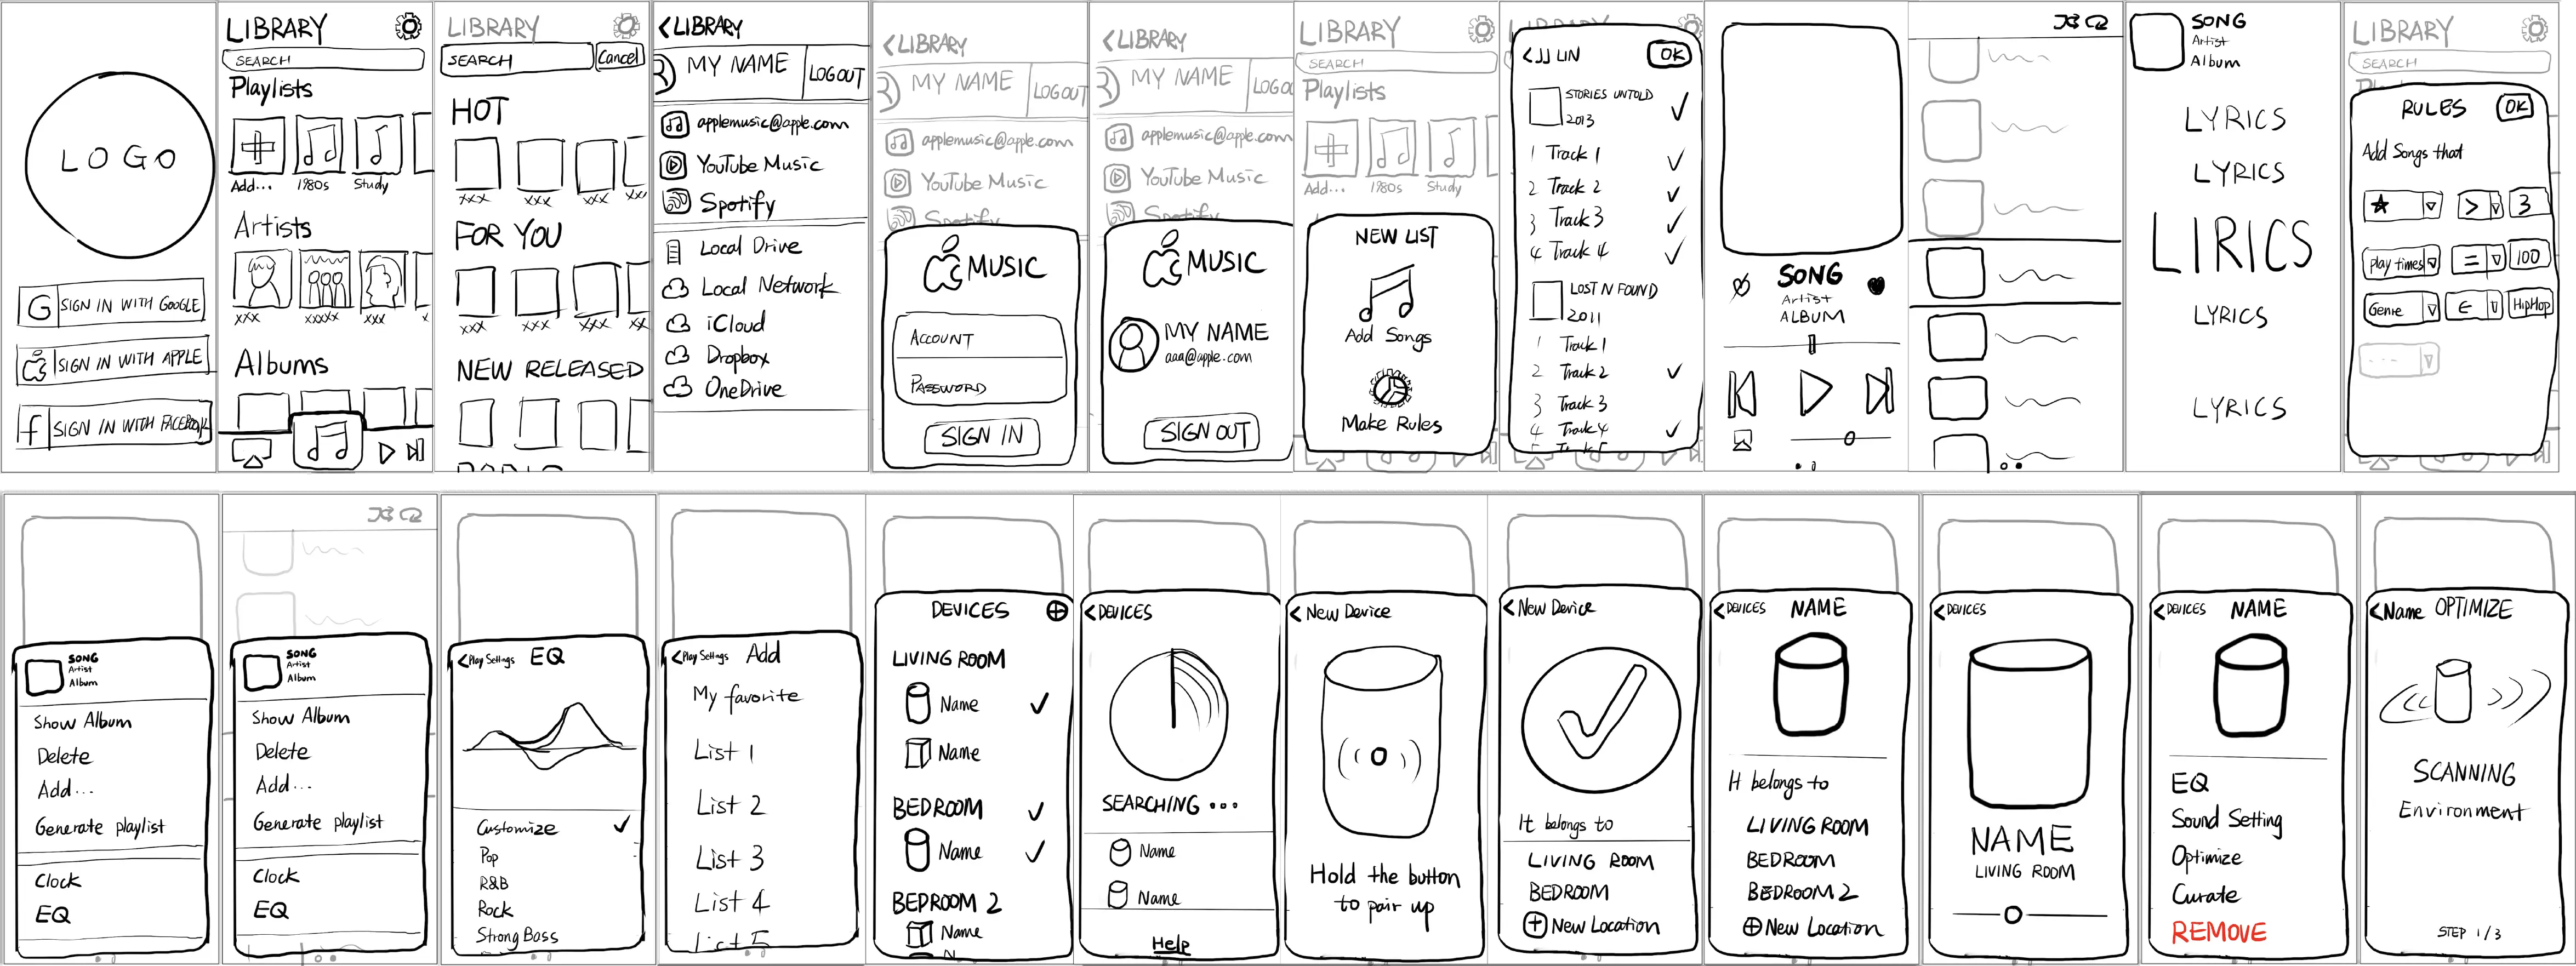 LOGO
G SIGN IN WITH GOOGLE
SIGN IN WITH APPLE
f SIGN IN WITH FACEBOOK
LIBRARY
SEARCH
Playlists
Add...
1980s
Study
Artists
xxx
xxxxx
xxx
x
Albums
LIBRARY
SEARCH
Cancel
HOT
xxx
xxx
xxx
xx
FOR YOU
xxx
xxx
xxx
xx
NEW RELEASED
<LIBRARY
MY NAME
LOGOUT
applemusic@apple.com
YouTube Music
Spotify
Local Drive
Local Network
iCloud
Dropbox
OneDrive
<LIBRARY
MY NAME
LOGOUT
applemusic@apple.com
YouTube Music
Spotify
MUSIC
ACCOUNT
PASSWORD
SIGN IN
<LIBRARY
MY NAME
LOGO
applemusic@apple.com
YouTube Music
Spotify
MUSIC
MY NAME
aaa@apple.com
SIGN OUT
LIBRARY
SEARCH
Playlists
Add...
1980s
Study
NEW LIST
Add Songs
Make Rules
LIBRARY
<JJ LIN
OK
STORIES UNTOLD
2013
1 Track 1
2 Track 2
3 Track 3
4 Track 4
LOST N FOUND
2011
1 Track 1
2 Track 2
3 Track 3
4 Track 4
SONG
Artist
ALBUM
SONG
Artist
Album
LYRICS
LYRICS
LIRICS
LYRICS
LYRICS
LIBRARY
SEARCH
RULES
OK
Add Songs that
★ > 3
Play times = 100
Genre ∈ HipHop
...
SONG
Artist
Album
Show Album
Delete
Add...
Generate playlist
Clock
EQ
SONG
Artist
Album
Show Album
Delete
Add...
Generate playlist
Clock
EQ
<Play Settings EQ
Customize
Pop
R&B
Rock
Strong Bass
<Play Settings Add
My favorite
List 1
List 2
List 3
List 4
List 5
DEVICES
LIVING ROOM
Name
Name
BEDROOM
Name
BEDROOM 2
Name
<DEVICES
SEARCHING...
Name
Name
Help
<New Device
Hold the button
to pair up
<New Device
It belongs to
LIVING ROOM
BEDROOM
New Location
<DEVICES NAME
It belongs to
LIVING ROOM
BEDROOM
BEDROOM 2
New Location
<DEVICES
NAME
LIVING ROOM
<DEVICES NAME
EQ
Sound Setting
Optimize
Curate
REMOVE
<Name OPTIMIZE
SCANNING
Environment
STEP 1/3